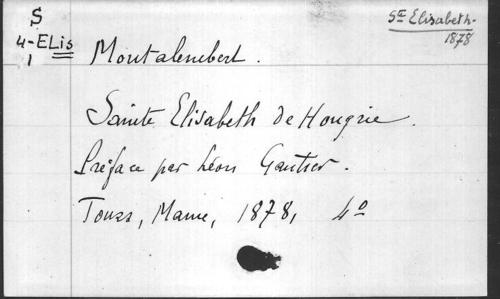 S
4-ELis
1
Ste Elisabeth-
1878
Montalembert.
Sainte Elisabeth de Hongrie.
Préface par Léon Gautier.
Tours, Mame, 1878, 4º